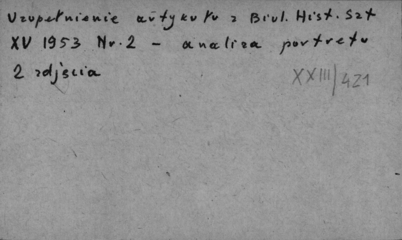 Uzupełnienie artykułu z Biul. Hist. Szt
XV 1953 Nr. 2 - analiza portretu
2 zdjścia
XXIII/421